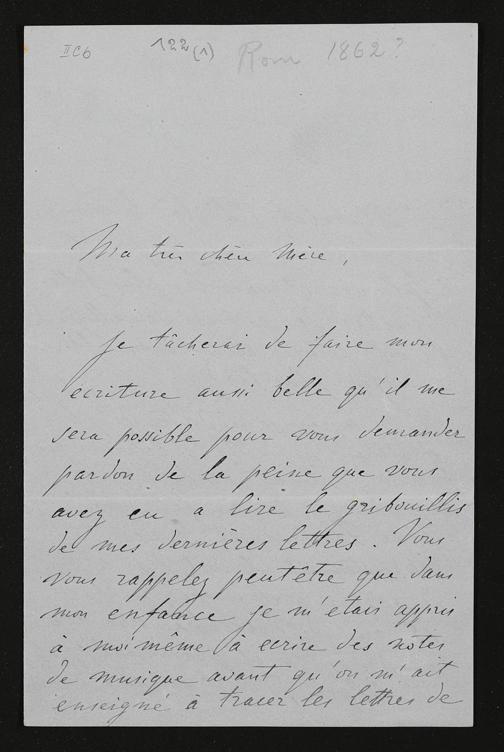 II C b
122 (1) Rom 1862?
Ma très chère Mère,
Je tâcherai de faire mon
ecriture aussi belle qu'il me
sera possible pour vous demander
pardon de la peine que vous
avez eu a lire le gribouillis
de mes dernières lettres. Vous
vous rappelez peutêtre que dans
mon enfance je m'étais appris
à moi même à ecrire des notes
de musique avant qu'on m'ait
enseigné à tracer les lettres de